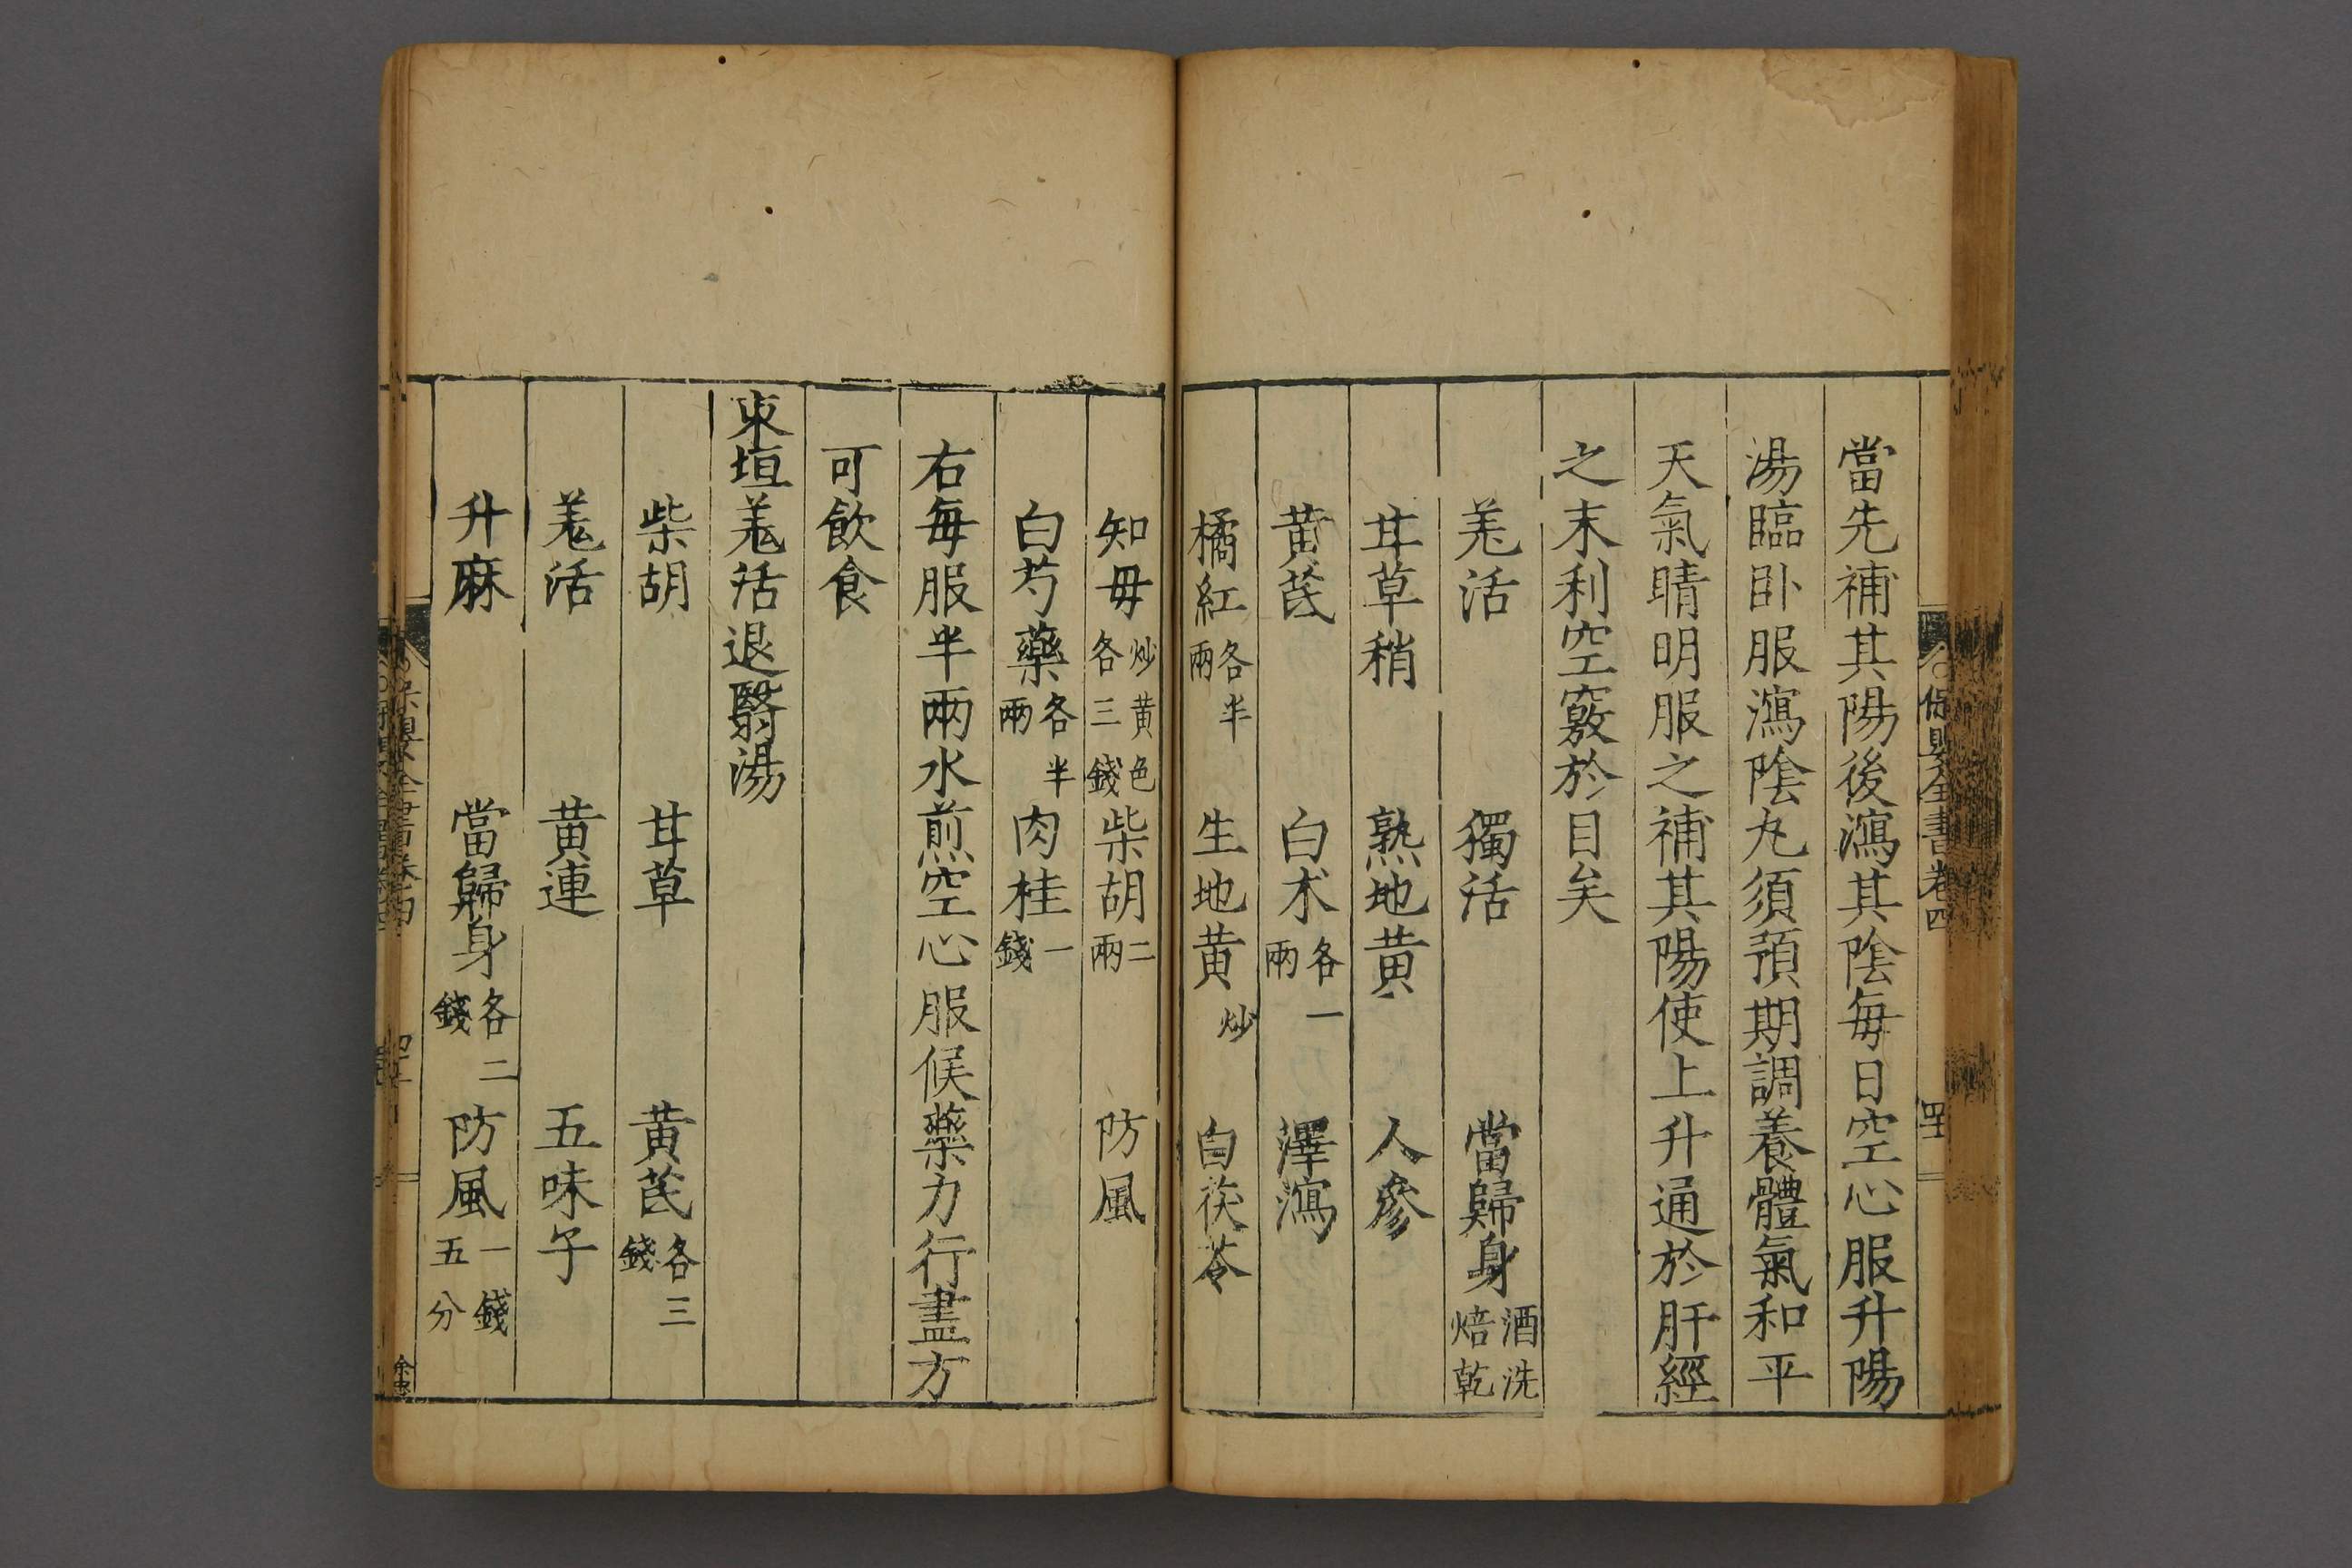 當先補其陽後瀉其陰每日空心服升陽
湯臨卧服瀉陰丸須預期調養體氣和平
天氣晴明服之補其陽使上升通於肝經
之末利空竅於目矣
羗活 獨活 當歸身酒洗焙乾
甘草稍 熟地黄 人參
黄芪 白术各一兩 澤瀉
橘紅各半兩 生地黄炒 白茯苓
知母炒黄色各三錢 柴胡二兩 防風
白芍藥各半兩 肉桂一錢
右每服半兩水煎空心服候藥力行盡方
可飲食
東垣羗活退翳湯
柴胡 甘草 黄芪各三錢
羗活 黄連 五味子
升麻 當歸身各二錢 防風一錢五分
保嬰全書卷四